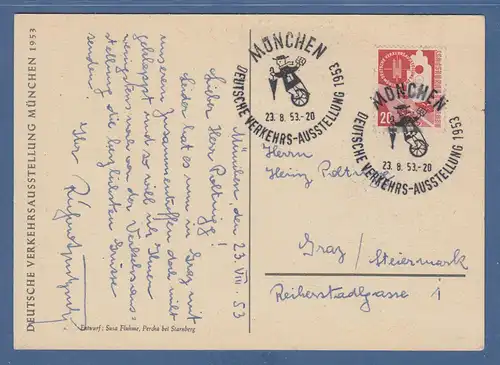 DEUTSCHE VERKEHRSAUSSTELLUNG MÜNCHEN 1953
München, den 23. VIII. 53
Lieber Herr Poltnigg!
Leider hat es nun in Graz mit
unserem Zusammentreffen doch nicht
geklappt und so will ich Ihnen
wenigstens mal von der Verkehrsaus-
stellung die herzlichsten Grüsse
senden.
Ihr
Entwurf: Susa Flohme, Percha bei Starnberg
MÜNCHEN
23. 8. 53.-20
DEUTSCHE VERKEHRS-AUSSTELLUNG 1953
MÜNCHEN
23. 8. 53.-20
DEUTSCHE VERKEHRS-AUSSTELLUNG 1953
20
Herrn
Heinz
Graz / Steiermark
Reiherstadlgasse 1